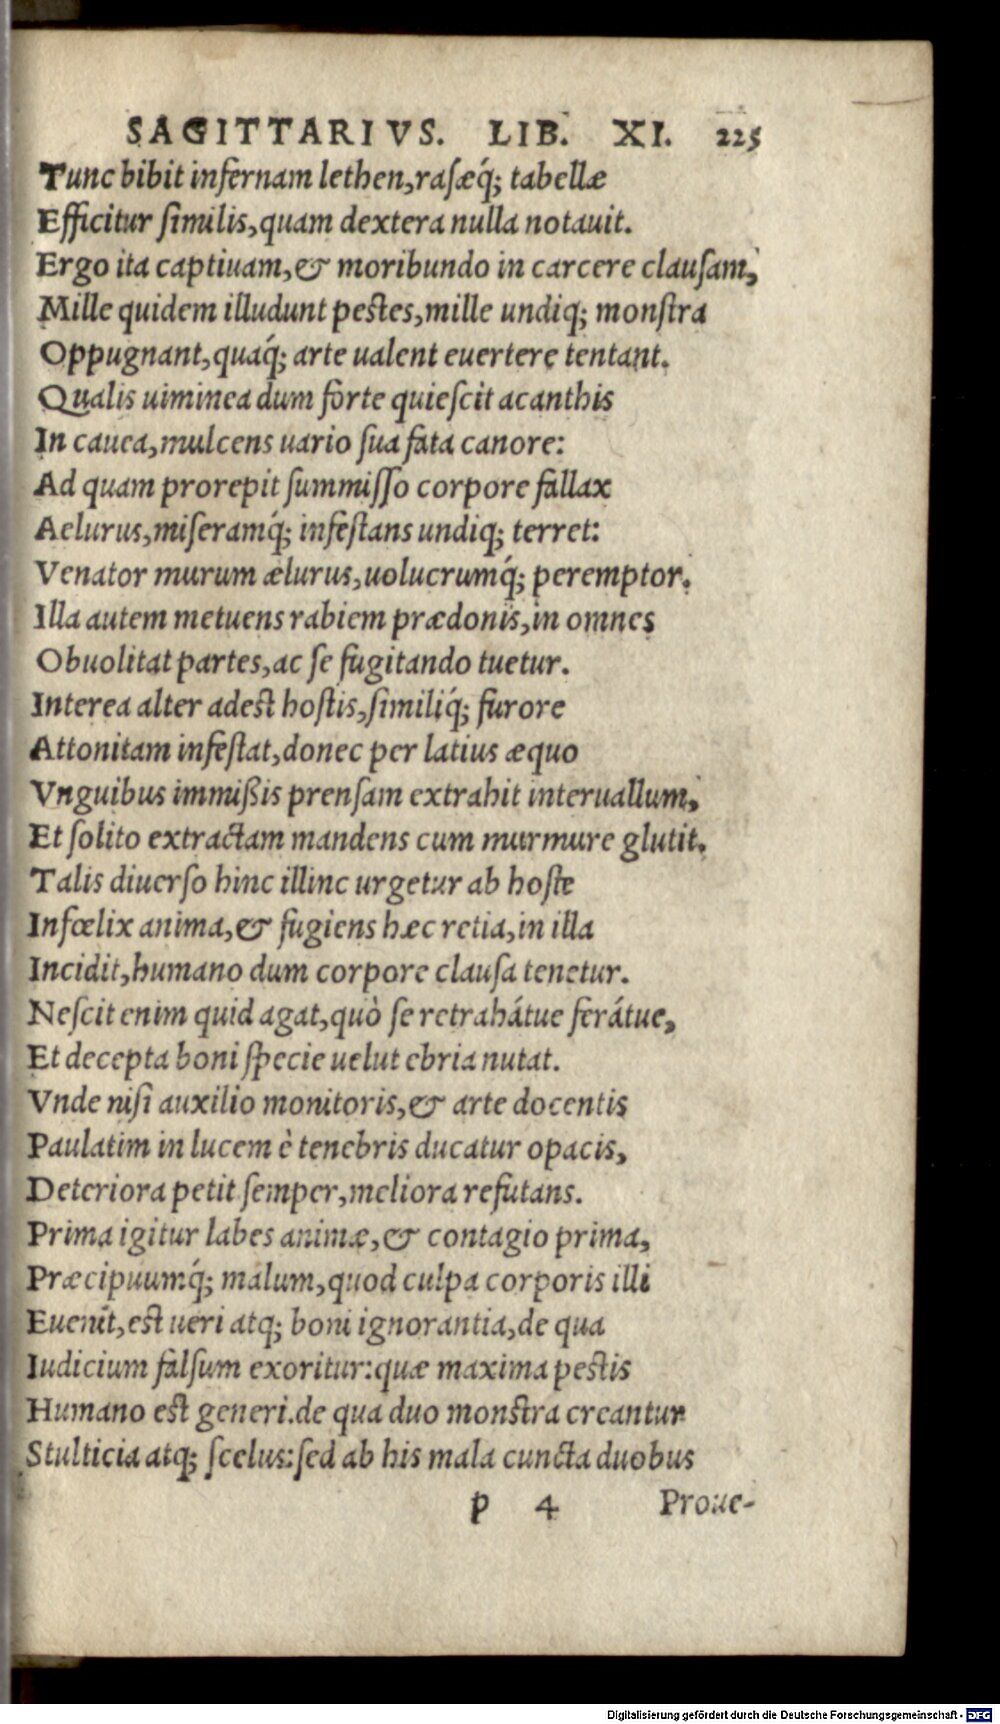 SAGITTARIVS. LIB. XI. 225
Tunc bibit infernam lethen, rasæq́; tabellæ
Efficitur similis, quam dextera nulla notauit.
Ergo ita captiuam, & moribundo in carcere clausam,
Mille quidem illudunt pestes, mille undiq; monstra
Oppugnant, quaq́; arte ualent euertere tentant.
Qualis uiminea dum forte quiescit acanthis
In cauea, mulcens uario sua fata canore:
Ad quam prorepit summisso corpore fallax
Aelurus, miseramq́; infestans undiq; terret:
Venator murum ælurus, uolucrumq́; peremptor.
Illa autem metuens rabiem prædonis, in omnes
Obuolitat partes, ac se fugitando tuetur.
Interea alter adest hostis, similiq́; furore
Attonitam infestat, donec per latius æquo
Vnguibus immißis prensam extrahit interuallum,
Et solito extractam mandens cum murmure glutit.
Talis diuerso hinc illinc urgetur ab hoste
Infœlix anima, & fugiens hæc retia, in illa
Incidit, humano dum corpore clausa tenetur.
Nescit enim quid agat, quò se retrahátue ferátue,
Et decepta boni specie uelut ebria nutat.
Vnde nisi auxilio monitoris, & arte docentis
Paulatim in lucem è tenebris ducatur opacis,
Deteriora petit semper, meliora refutans.
Prima igitur labes animæ, & contagio prima,
Præcipuumq́; malum, quod culpa corporis illi
Euenit, est ueri atq; boni ignorantia, de qua
Iudicium falsum exoritur: quæ maxima pestis
Humano est generi. de qua duo monstra creantur
Stulticia atq; scelus: sed ab his mala cuncta duobus
p 4 Proue-
Digitalisierung gefördert durch die Deutsche Forschungsgemeinschaft - DFG